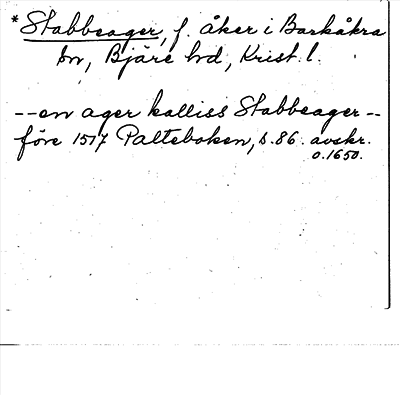 * Stabbeager, f. åker i Barkåkra
sn, Bjäre hd, Krist. l.
-- en ager kalliss Stabbeager --
före 1517 Palteboken, s. 86. avskr.
o. 1650.